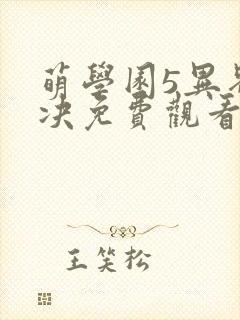 萌學園5異界
決免費觀看
王笑松